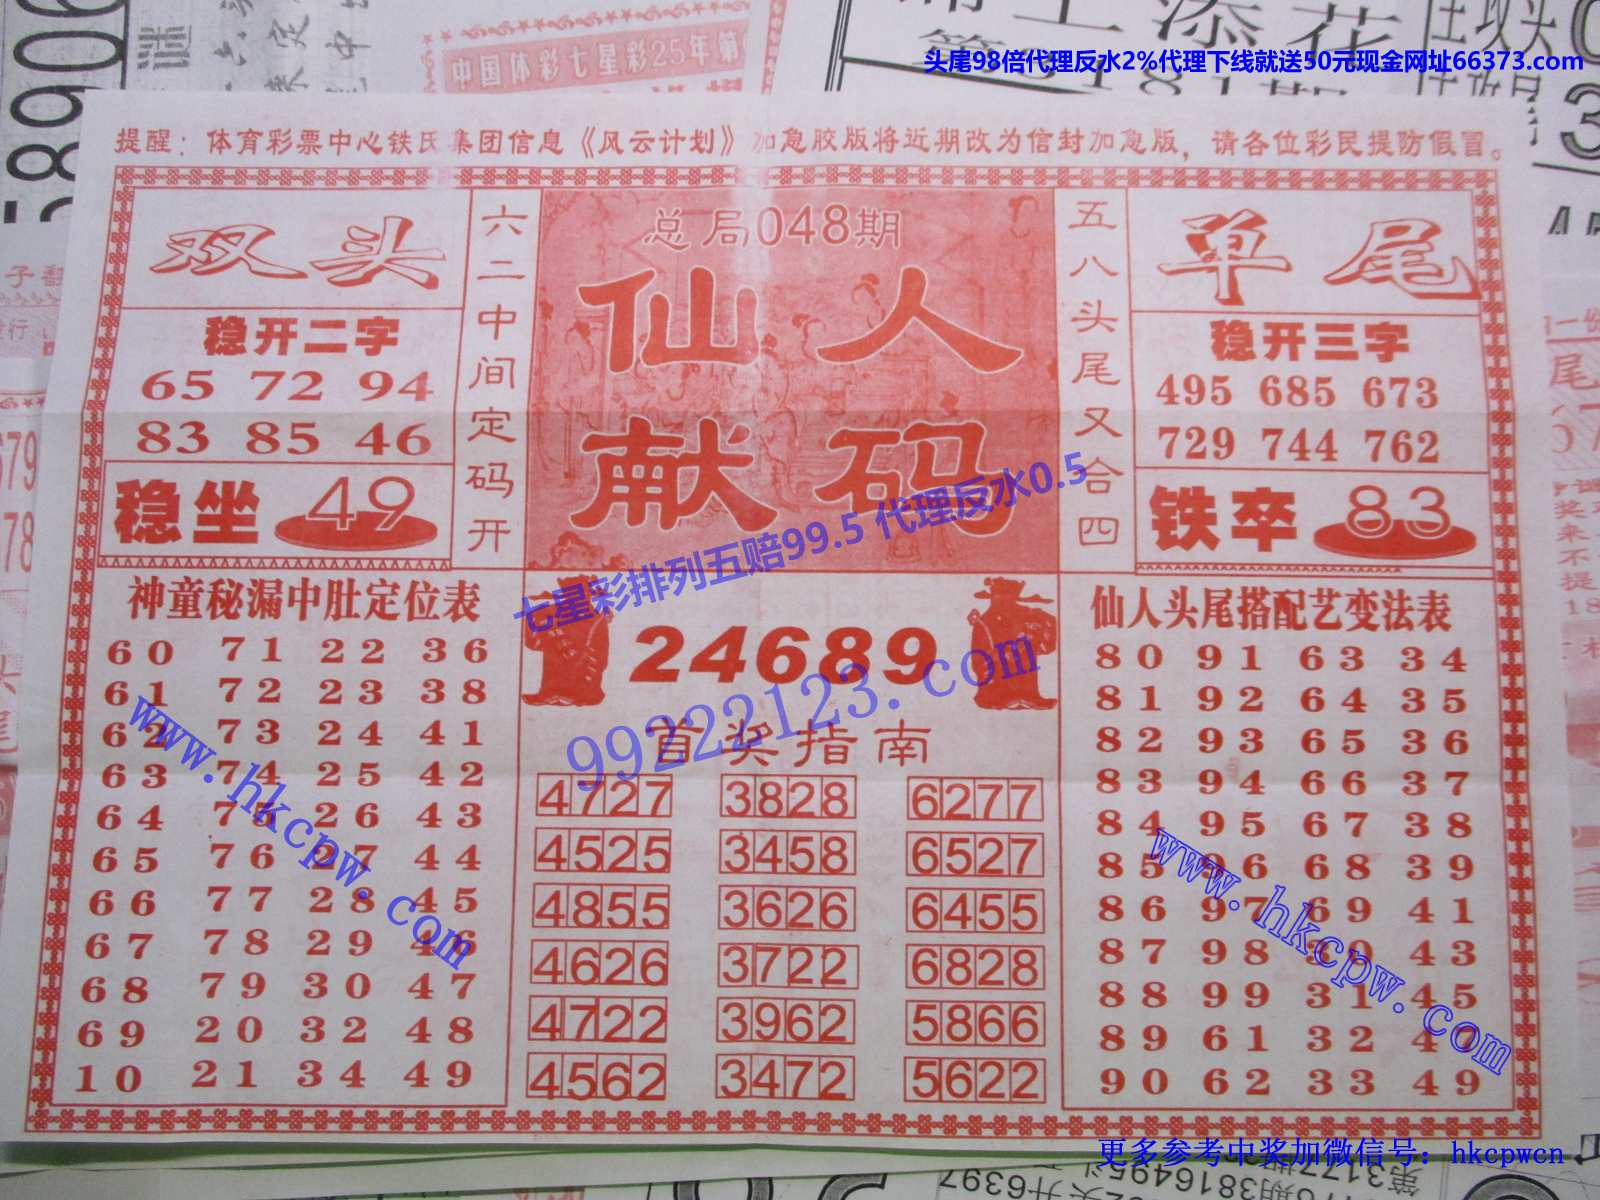 中国体彩七星彩25年第
头尾98倍代理反水2%代理下线就送50元现金网址66373.com
提醒：体育彩票中心铁氏集团信息《风云计划》加急胶版将近期改为信封加急版，请各位彩民提防假冒。
双头
稳开二字
65 72 94
83 85 46
稳坐 49
六二中间定码开
总局048期
仙人
献码
五八头尾又合四
单尾
稳开三字
495 685 673
729 744 762
铁卒 83
七星彩排列五赔99.5 代理反水0.5
99222123.com
神童秘漏中肚定位表
60 71 22 36
61 72 23 38
62 73 24 41
63 74 25 42
64 75 26 43
65 76 27 44
66 77 28 45
67 78 29 46
68 79 30 47
69 20 32 48
10 21 34 49
www.hkcpw.com
24689
首奖指南
4727 3828 6277
4525 3458 6527
4855 3626 6455
4626 3722 6828
4722 3962 5866
4562 3472 5622
仙人头尾搭配艺变法表
80 91 63 34
81 92 64 35
82 93 65 36
83 94 66 37
84 95 67 38
85 96 68 39
86 97 69 41
87 98 30 43
88 99 31 45
89 61 32 47
90 62 33 49
www.hkcpw.com
更多参考中奖加微信号：hkcpwcn